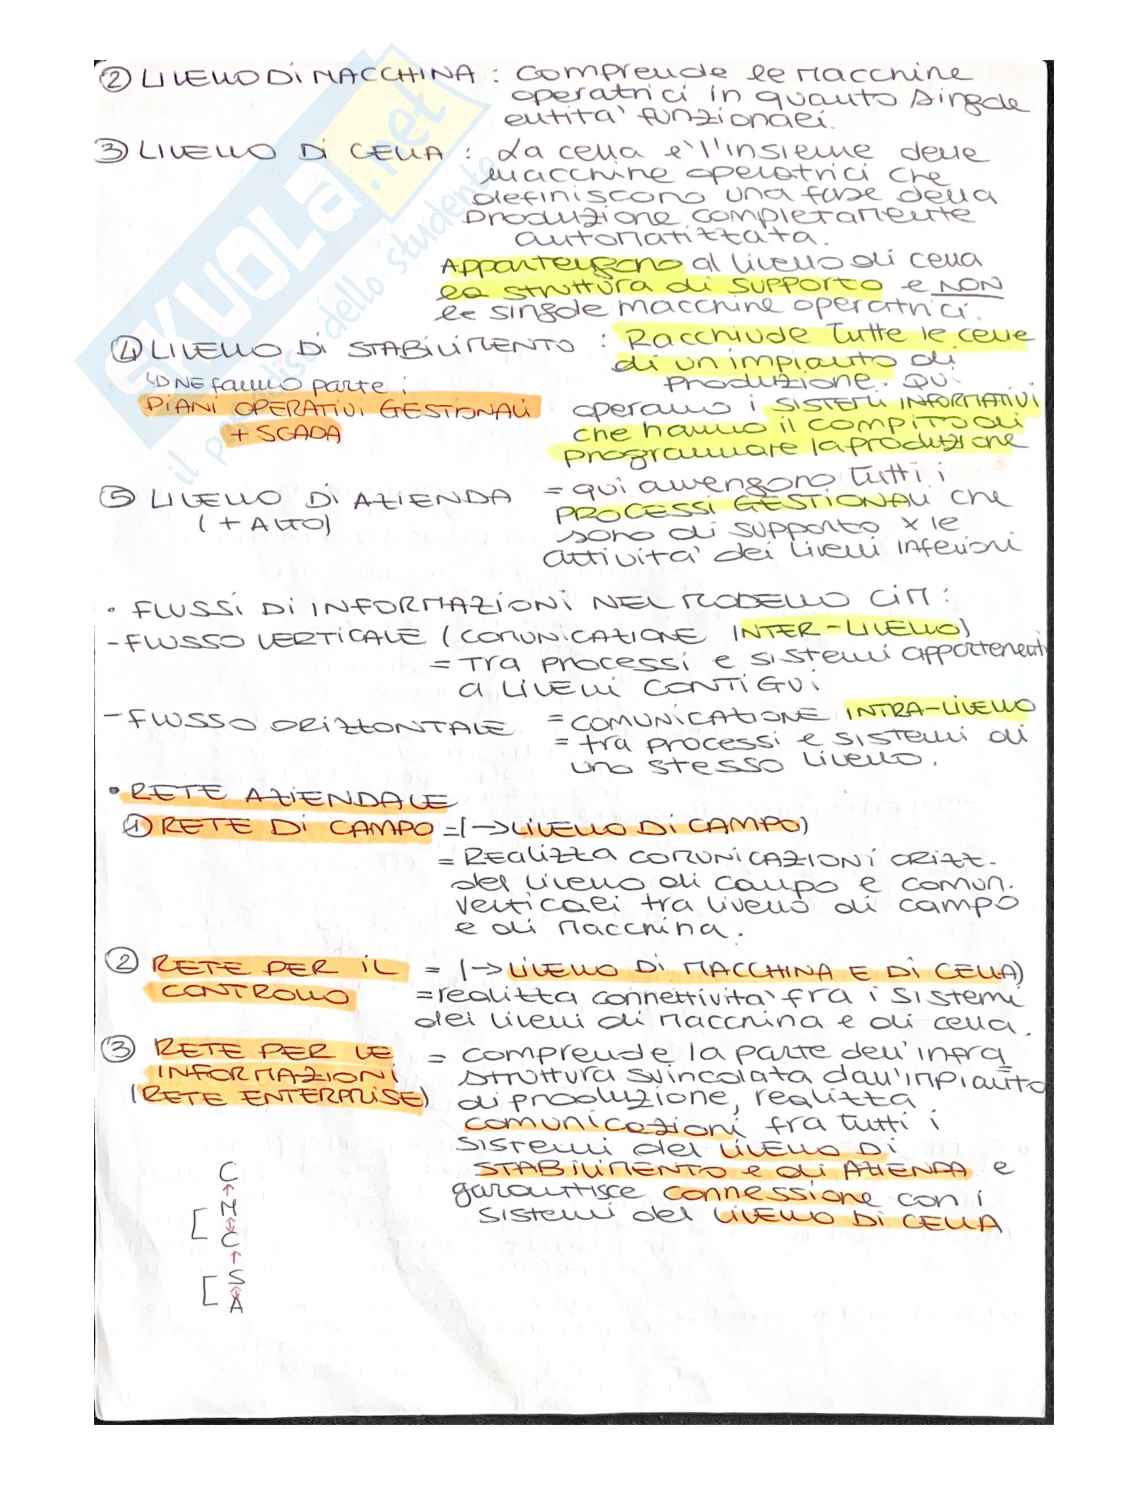 ② LIVELLO DI MACCHINA : comprende le macchine
operatrici in quanto singole
entità funzionali.
③ LIVELLO DI CELLA : La cella è l'insieme delle
macchine operatrici che
definiscono una fase della
produzione completamente
automatizzata.
Appartengono al livello di cella
la struttura di supporto e NON
le singole macchine operatrici.
④ LIVELLO DI STABILIMENTO : Racchiude tutte le celle
di un impianto di
↳ NE fanno parte : produzione. Qui
PIANI OPERATIVI GESTIONALI operano i SISTEMI INFORMATIVI
+ SCADA che hanno il compito di
programmare la produzione
⑤ LIVELLO DI AZIENDA = qui avvengono tutti i
(+ ALTO) PROCESSI GESTIONALI che
sono di supporto x le
attività dei livelli inferiori
• FLUSSI DI INFORMAZIONI NEL MODELLO CIM :
- FLUSSO VERTICALE (COMUNICAZIONE INTER-LIVELLO)
= Tra processi e sistemi appartenenti
a LIVELLI CONTIGUI
- FLUSSO ORIZZONTALE = COMUNICAZIONE INTRA-LIVELLO
= tra processi e sistemi di
uno stesso livello.
• RETE AZIENDALE
① RETE DI CAMPO = (→ LIVELLO DI CAMPO)
= Realizza comunicazioni orizz.
del livello di campo e comun.
verticali tra livello di campo
e di macchina.
② RETE PER IL = (→ LIVELLO DI MACCHINA E DI CELLA)
CONTROLLO = realizza connettività fra i sistemi
dei livelli di macchina e di cella.
③ RETE PER LE = comprende la parte dell'infra
INFORMAZIONI struttura svincolata dall'impianto
(RETE ENTERPRISE) di produzione, realizza
comunicazioni fra tutti i
sistemi del LIVELLO DI
STABILIMENTO e di AZIENDA e
garantisce connessione con i
sistemi del LIVELLO DI CELLA
C
↑
M
↕
C
↑
S
↕
A
SKUOLA.net
il paradiso dello studente